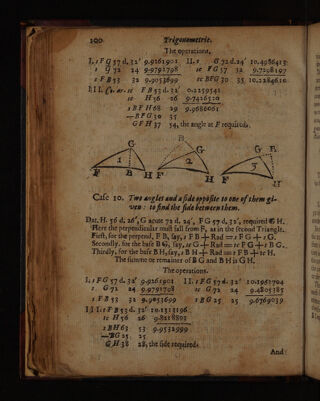 100 Trigonometrie.
The operations.
I. s FG 57 d. 32' 9.9261901 II. s G 72 d. 24' 10.4986413
s G 72 24 9.9791798 tc FG 57 32 9.7298197
s FB 53 32 9.9053699 tc BFG 30 35 10.2284610
III. Co. ar. sc FB 53 d. 32' 0.2259541
sc H 56 26 9.7426520
s BFH 68 29 9.9686061
—BFG 30 35
GFH 37 54, the angle at F required.
G B F 1 B H G F 2 H G B F 3 H
Case 10. Two angles and a side opposite to one of them given: to find the side between them.
Dat. H. 56 d. 26', G acute 72 d. 24', FG 57 d. 32', required GH.
Here the perpendicular must fall from F, as in the second Triangle.
First, for the perpend. FB, say, s FB + Rad = s FG + s G.
Secondly, for the base BG, say, tc G + Rad = tc FG + t BG.
Thirdly, for the base BH, say, s BH + Rad = t FB + tc H.
The summe or remainer of BG and BH is GH.
The operations.
I. s FG 57 d. 32' 9.9261901 II. t FG 57 d. 32' 10.1963704
s. G 72 24 9.9791798 sc G 72 24 9.4805385
s FB 53 32 9.9053699 t BG 25 25 9.6769039
III. t FB 53 d. 32' 10.1313196
tc H 56 26 9.8218803
s BH 63 53 9.9532999
—BG 25 25
GH 38 28, the side required.
And